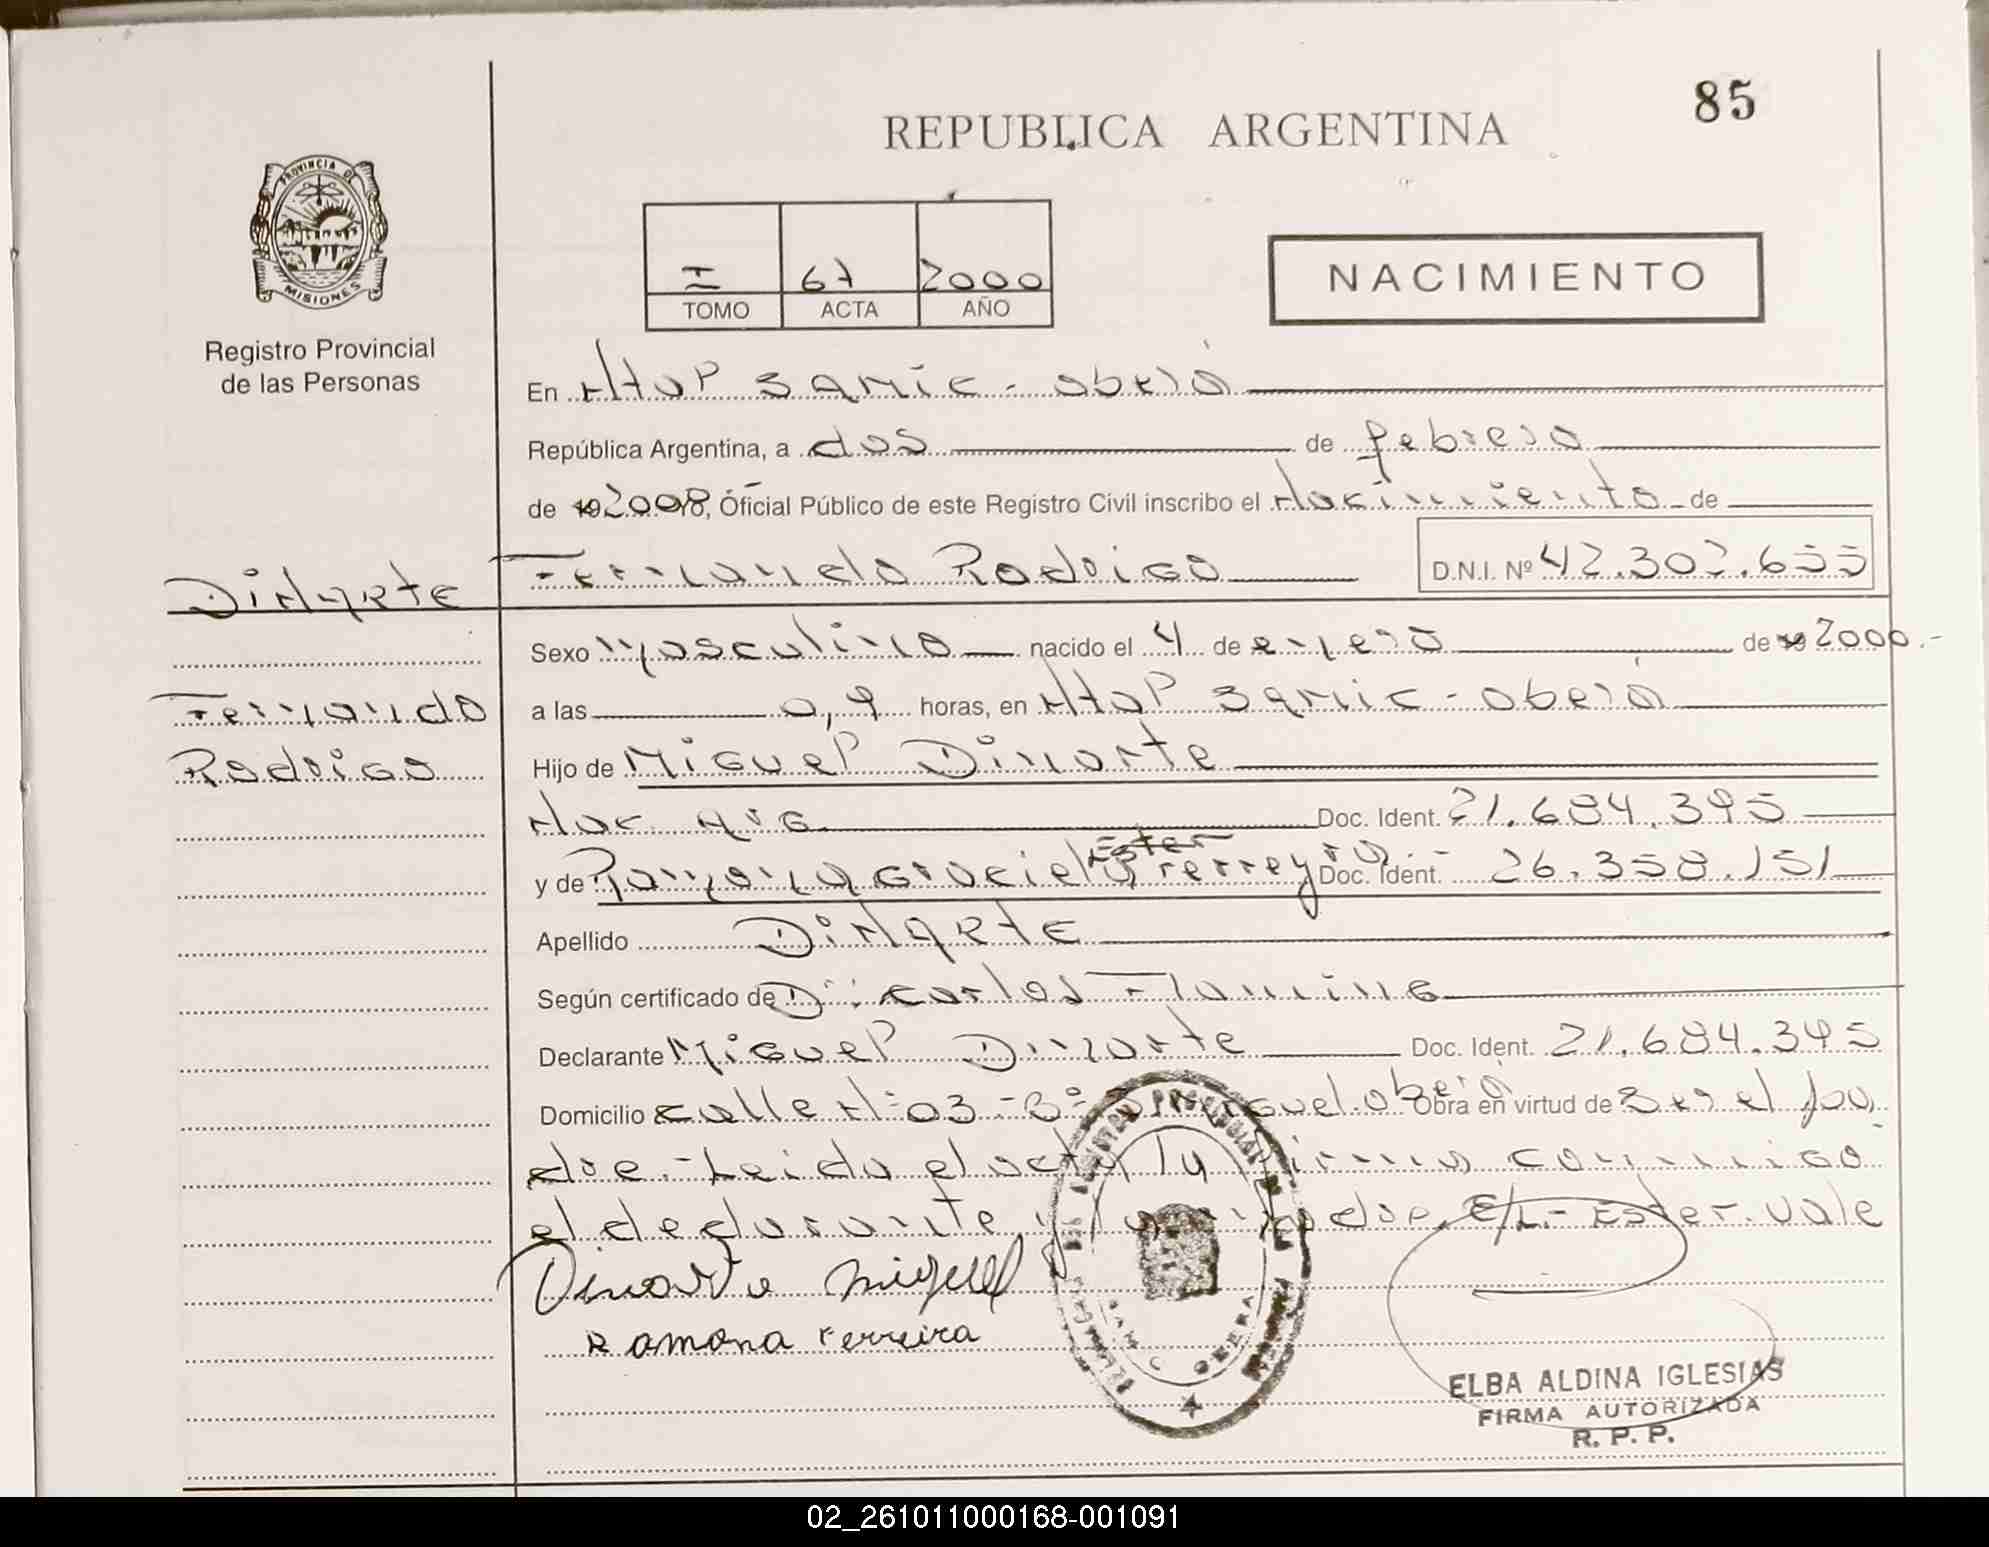 85
REPUBLICA ARGENTINA
PROVINCIA DE
MISIONES
Registro Provincial
de las Personas
I 67 2000
TOMO ACTA AÑO
NACIMIENTO
En Htal Samic - oberá
República Argentina, a dos de febrero
de 19 2000, Oficial Público de este Registro Civil inscribo el Nacimiento de
DiNArte Fernando Rodrigo D.N.I. Nº 42.302.655
Sexo Masculino nacido el 4 de enero de 19 2000.-
Fernando
Rodrigo
a las 0,9 horas, en Htal Samic - oberá
Hijo de Miguel Dinarte
Nac. Arg. Doc. Ident. 21.684.395
Ester
y de Ramona Graciela Ferreyra Doc. Ident. 26.358.151
Apellido DiNArte
Según certificado de Dr. Carlos
Declarante Miguel Dinarte Doc. Ident. 21.684.395
Domicilio calle N: 03 - Bº Miguel oberá Obra en virtud de Ser el pa
dre.- Leida el acta la firman conmigo
el declarante y la madre. E/L.- Ester. Vale
Dinarte Miguel
Ramona Ferreira
OBERA
ELBA ALDINA IGLESIAS
FIRMA AUTORIZADA
R. P. P.
02_261011000168-001091